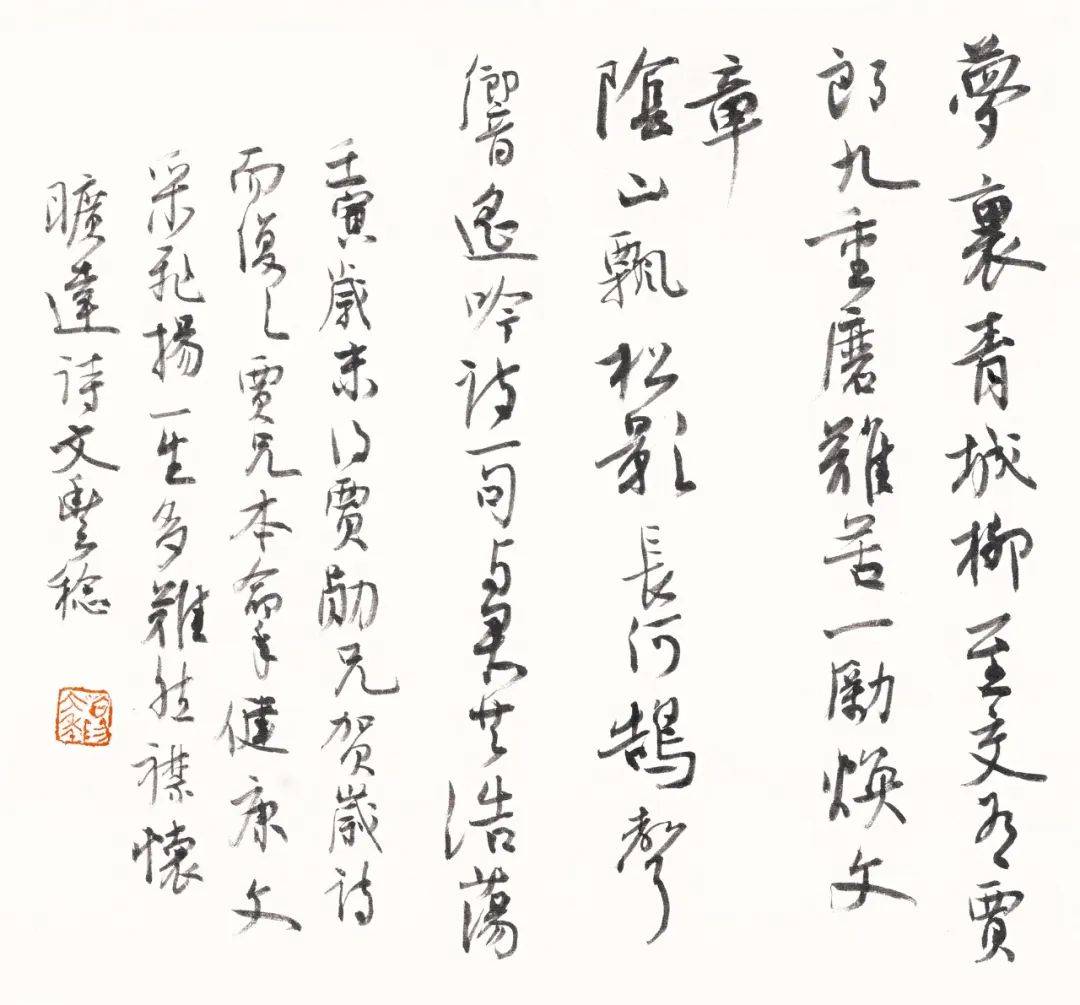 夢裏青城柳至交賈
郎九重磨難苦一勵煥文
章
陰山飄松影長河鵠聲
響遙吟詩一句与君共浩蕩
壬寅歲末得賈勛兄賀歲詩
而復之賈兄本命年健康文
采飛揚一生多難然襟懷
曠達詩文豐稔